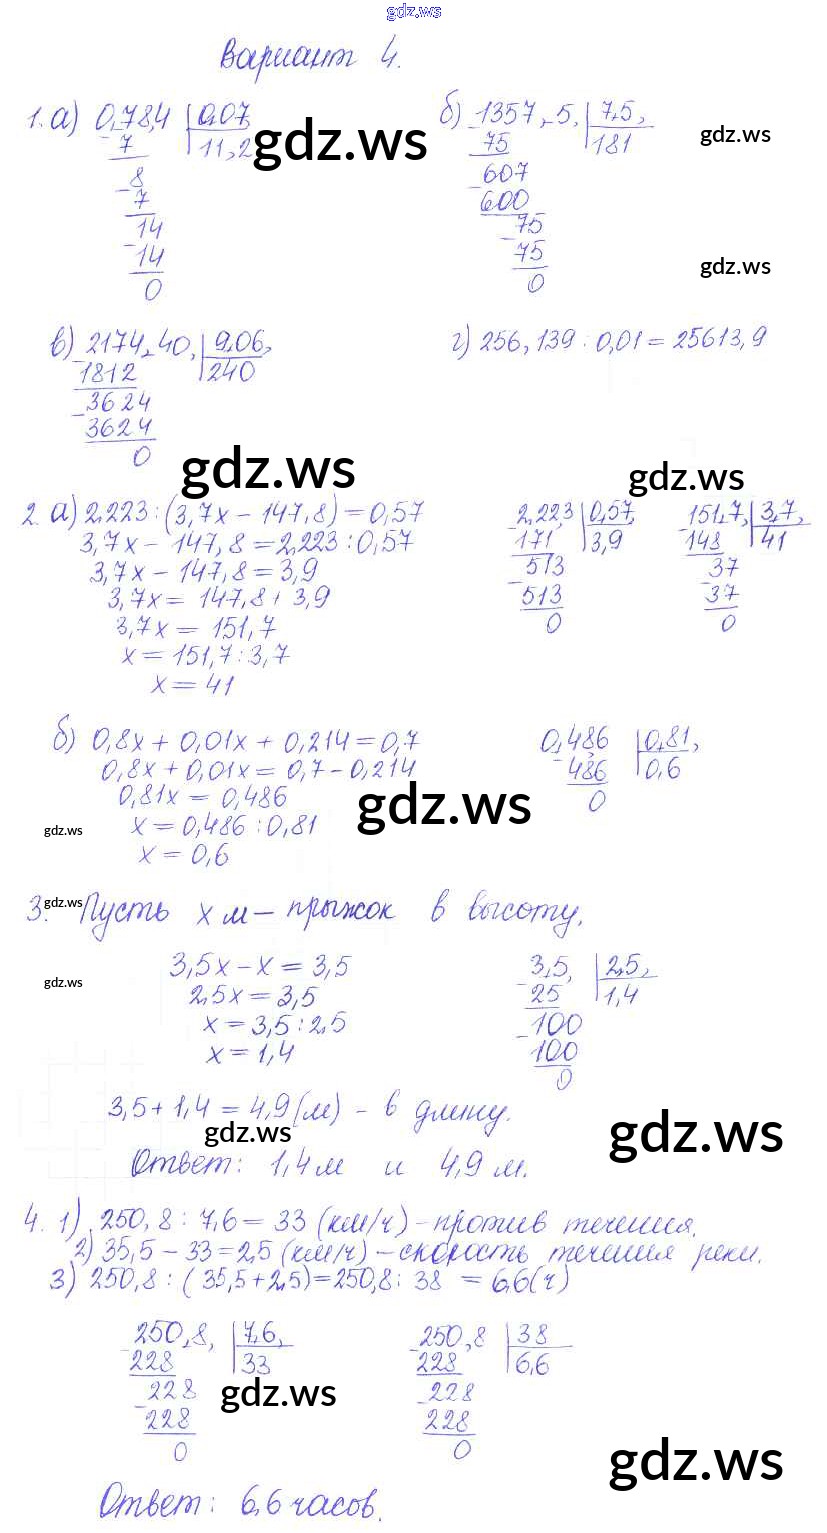 gdz.ws
Вариант 4.
1. а) 0,78,4 | 0,07,
7 11,2
8
7
14
14
0
gdz.ws
б) 1357,5, | 7,5,
75 181
607
600
75
75
0
gdz.ws
gdz.ws
в) 2174,40, | 9,06,
1812 240
3624
3624
0
г) 256,139 : 0,01 = 25613,9
gdz.ws
gdz.ws
2. а) 2,223 : (3,7х - 147,8) = 0,57
3,7х - 147,8 = 2,223 : 0,57
3,7х - 147,8 = 3,9
3,7х = 147,8 + 3,9
3,7х = 151,7
х = 151,7 : 3,7
х = 41
2,22,3 | 0,57,
171 3,9
513
513
0
151,7, | 3,7,
148 41
37
37
0
б) 0,8х + 0,01х + 0,214 = 0,7
0,8х + 0,01х = 0,7 - 0,214
0,81х = 0,486
х = 0,486 : 0,81
х = 0,6
0,486 | 0,81,
486 0,6
0
gdz.ws
gdz.ws
gdz.ws
3. Пусть х м - прыжок в высоту.
3,5х - х = 3,5
2,5х = 3,5
х = 3,5 : 2,5
х = 1,4
3,5, | 2,5,
25 1,4
100
100
0
gdz.ws
3,5 + 1,4 = 4,9 (м) - в длину.
gdz.ws
gdz.ws
Ответ: 1,4 м и 4,9 м.
4. 1) 250,8 : 7,6 = 33 (км/ч) - против течения.
2) 35,5 - 33 = 2,5 (км/ч) - скорость течения реки.
3) 250,8 : (35,5 + 2,5) = 250,8 : 38 = 6,6 (ч)
250,8, | 7,6,
228 33
228
228
0
250,8 | 38
228 6,6
228
228
0
gdz.ws
gdz.ws
Ответ: 6,6 часов.